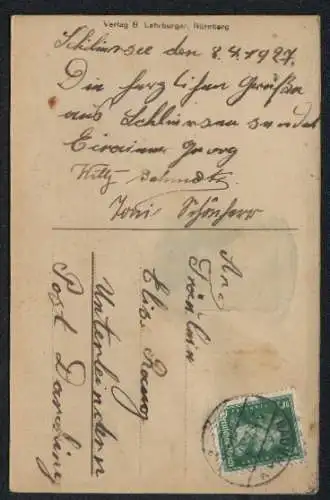 Verlag B. Lehrburger, Nürnberg
Schliersee den 8.4.1927.
Die herzlichen Grüße
aus Schliersee sendet
Georg
Willy
Toni Schönherr
An
Fräulein
Elis.
Unterleindern
Post Darching